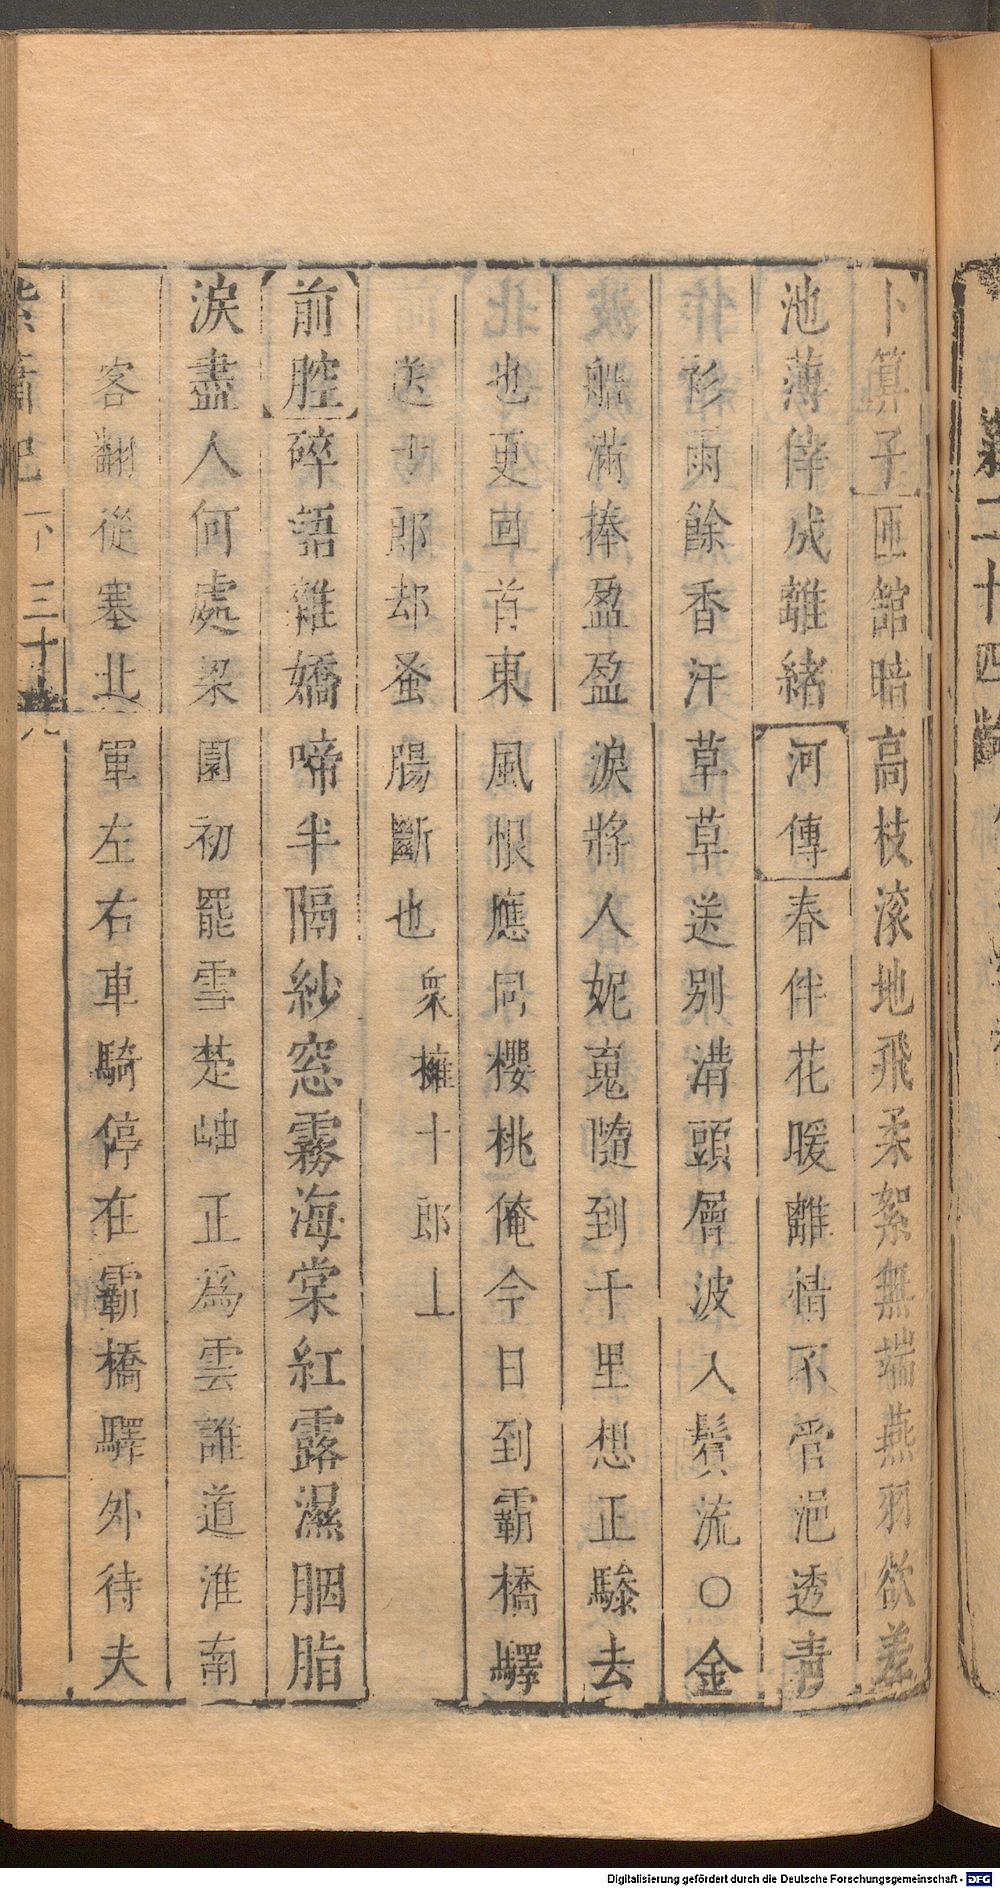 卜算子匝舘晧高枝滚地飛柔絮無端燕羽欲差
池薄倖成離緒河傳春伴花暖離情不管浥透青
衫雨餘香汗草草送別溝頭層波入鬢流○金
船滿捧盈盈淚將人妮䰟隨到千里想正驂去
也更回首東風恨應同櫻桃俺今日到霸橋驛
送十郎却蚤腸斷也衆擁十郎上
前腔碎語雜嬌啼半隔紗窓霧海棠紅露濕胭脂
淚盡人何處梁園初罷雪楚岫正爲雲誰道淮南
客翻從塞北軍左右車騎停在霸橋驛外待夫
紫簫記 下 三十九
二十四齣
Digitalisierung gefördert durch die Deutsche Forschungsgemeinschaft - DFG